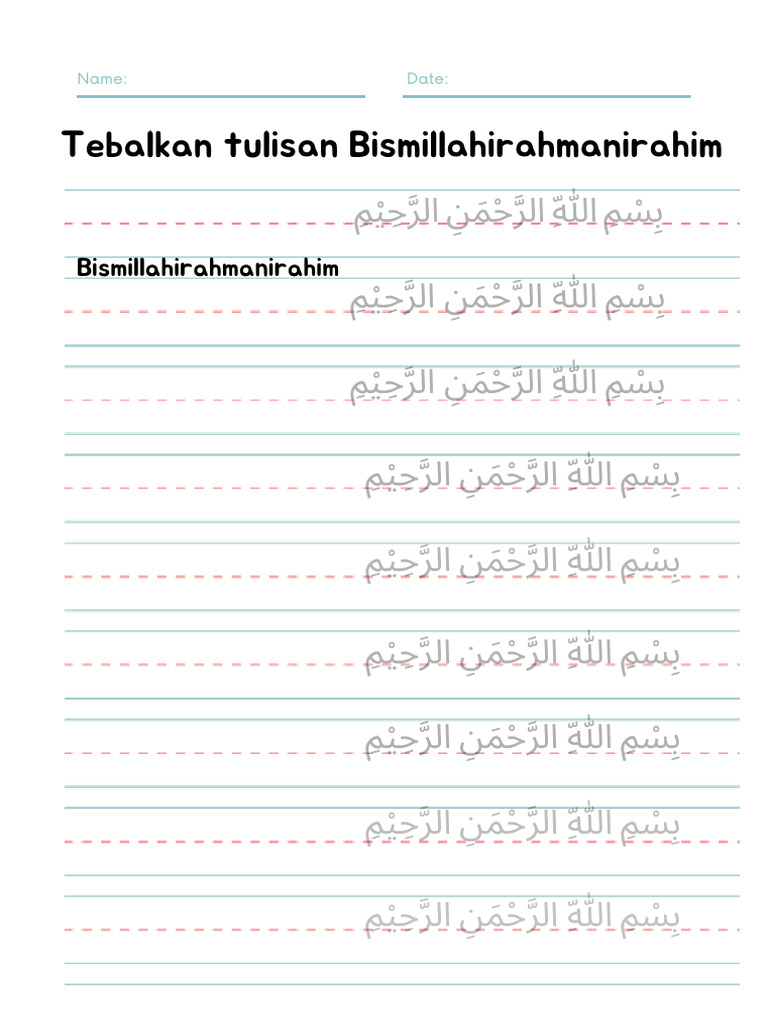 Name: Date:
Tebalkan tulisan Bismillahirahmanirahim
بِسْمِ اللّٰهِّ الرَّحْمَنِ الرَّحِيْمِ
Bismillahirahmanirahim
بِسْمِ اللّٰهِّ الرَّحْمَنِ الرَّحِيْمِ
بِسْمِ اللّٰهِّ الرَّحْمَنِ الرَّحِيْمِ
بِسْمِ اللّٰهِّ الرَّحْمَنِ الرَّحِيْمِ
بِسْمِ اللّٰهِّ الرَّحْمَنِ الرَّحِيْمِ
بِسْمِ اللّٰهِّ الرَّحْمَنِ الرَّحِيْمِ
بِسْمِ اللّٰهِّ الرَّحْمَنِ الرَّحِيْمِ
بِسْمِ اللّٰهِّ الرَّحْمَنِ الرَّحِيْمِ
بِسْمِ اللّٰهِّ الرَّحْمَنِ الرَّحِيْمِ